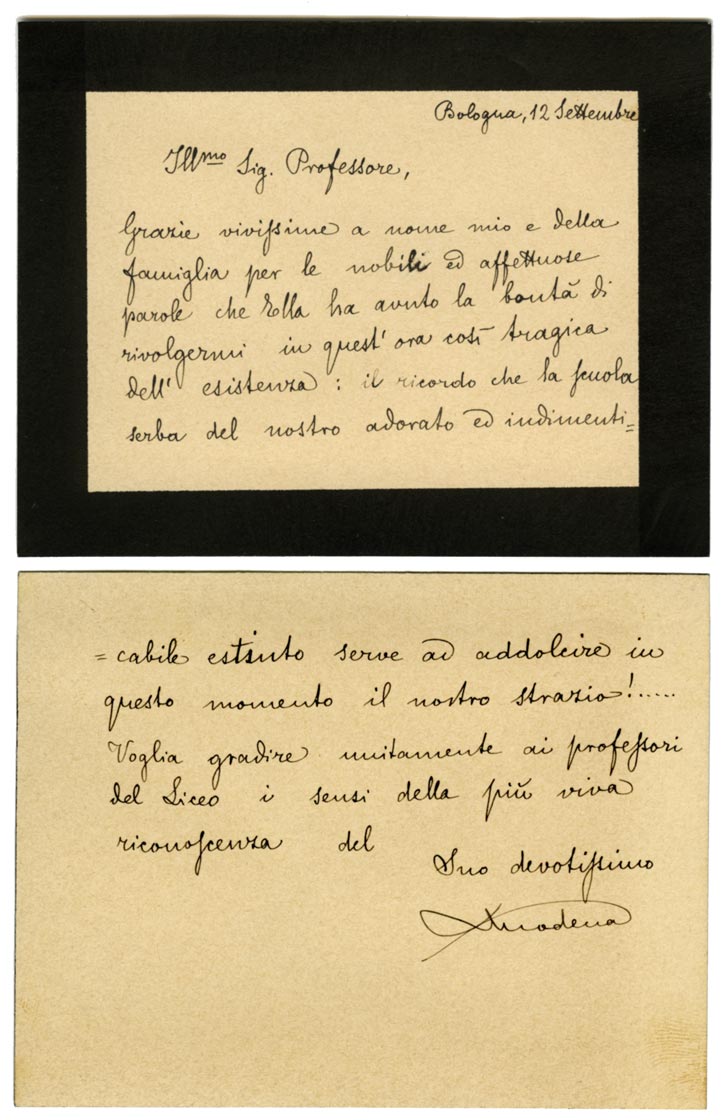 Bologna, 12 Settembre
Ill.mo Sig. Professore,
Grazie vivissime a nome mio e della
famiglia per le nobili ed affettuose
parole che Ella ha avuto la bontà di
rivolgermi in quest' ora così tragica
dell' esistenza : il ricordo che la scuola
serba del nostro adorato ed indimenti=
=cabile estinto serve ad addolcire in
questo momento il nostro strazio!.....
Voglia gradire unitamente ai professori
del Liceo i sensi della più viva
riconoscenza del
Suo devotissimo
Modena